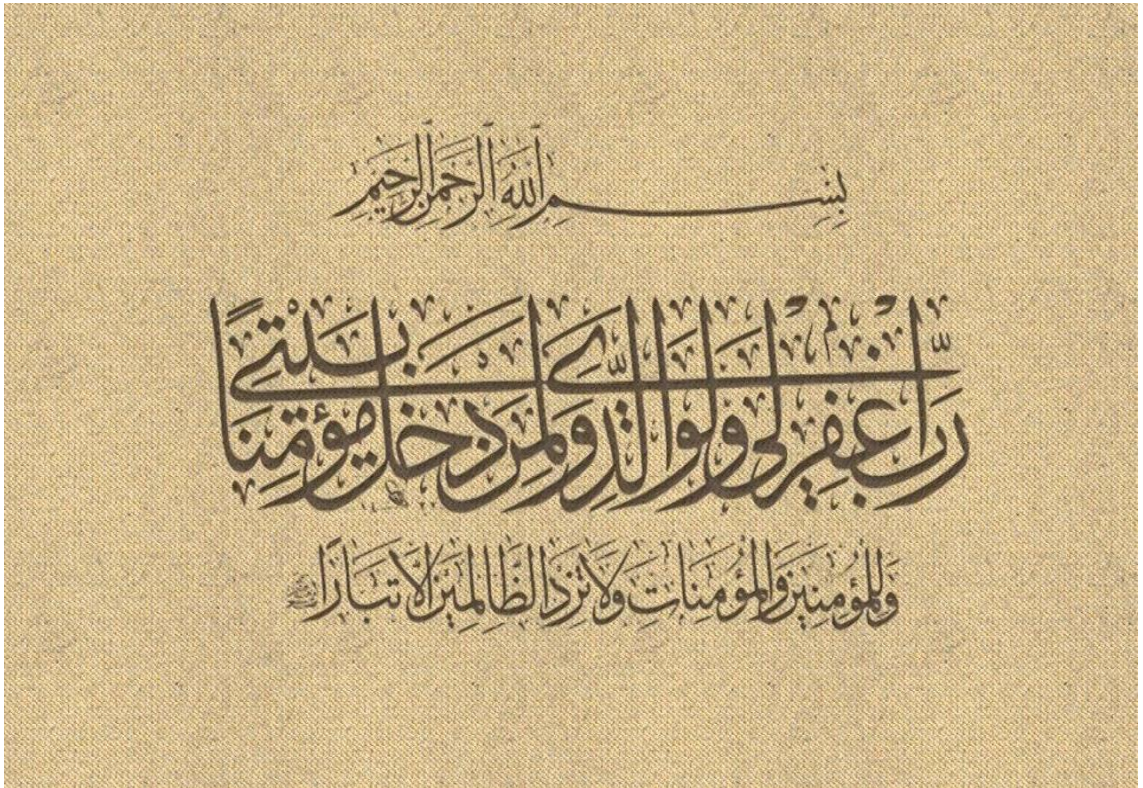 بِسْمِ ٱللَّهِ ٱلرَّحْمَٰنِ ٱلرَّحِيمِ
رَّبِّ اغْفِرْ لِي وَلِوَالِدَيَّ وَلِمَن دَخَلَ بَيْتِيَ مُؤْمِنًا
وَلِلْمُؤْمِنِينَ وَالْمُؤْمِنَاتِ وَلَا تَزِدِ الظَّالِمِينَ إِلَّا تَبَارًا